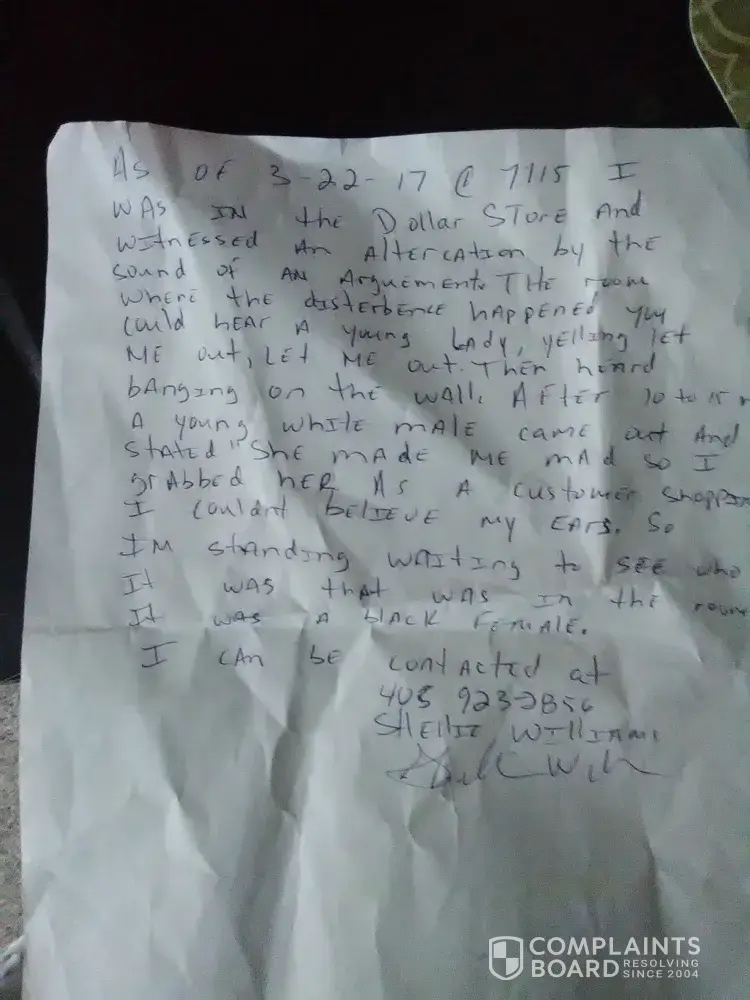 AS OF 3-22-17 @ 7115 I
WAS IN the Dollar STORE And
WITNESSED An Altercation by the
sound of AN Arguement. THE room
where the disterbence happened you
could hear A young Lady, yelling let
ME out, Let ME out. Then heard
banging on the wall. After 10 to 15
A young white male came out And
stated "She made ME mad so I
grabbed her As A customer
I couldnt believe my ears. So
IM standing waiting to see who
It was that was in the room
It was A black female.
I can be contacted at
923-2856
SHellie William
COMPLAINTS
BOARD RESOLVING
SINCE 2004